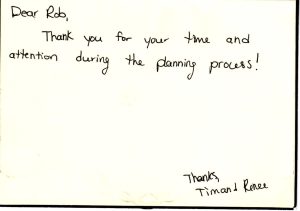 Dear Rob,
Thank you for your time and
attention during the planning process!
Thanks,
Tim and Renee